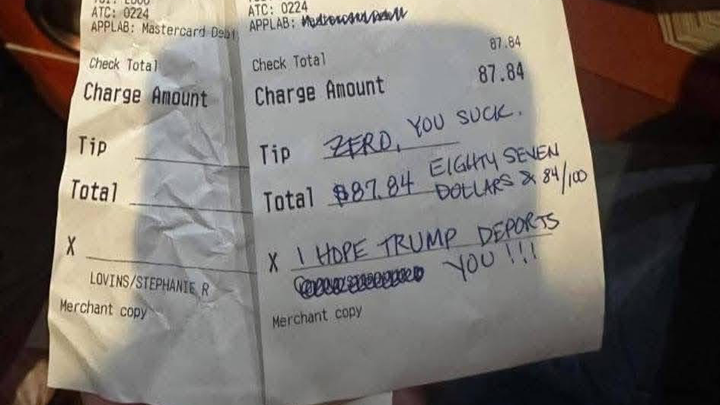 ATC: 0224
APPLAB: Mastercard Debit
Check Total
Charge Amount
Tip
Total
X
LOVINS/STEPHANIE R
Merchant copy
ATC: 0224
APPLAB:
Check Total 87.84
Charge Amount 87.84
Tip ZERO, YOU SUCK.
Total $87.84 EIGHTY SEVEN
DOLLARS & 84/100
X I HOPE TRUMP DEPORTS
YOU!!!
Merchant copy